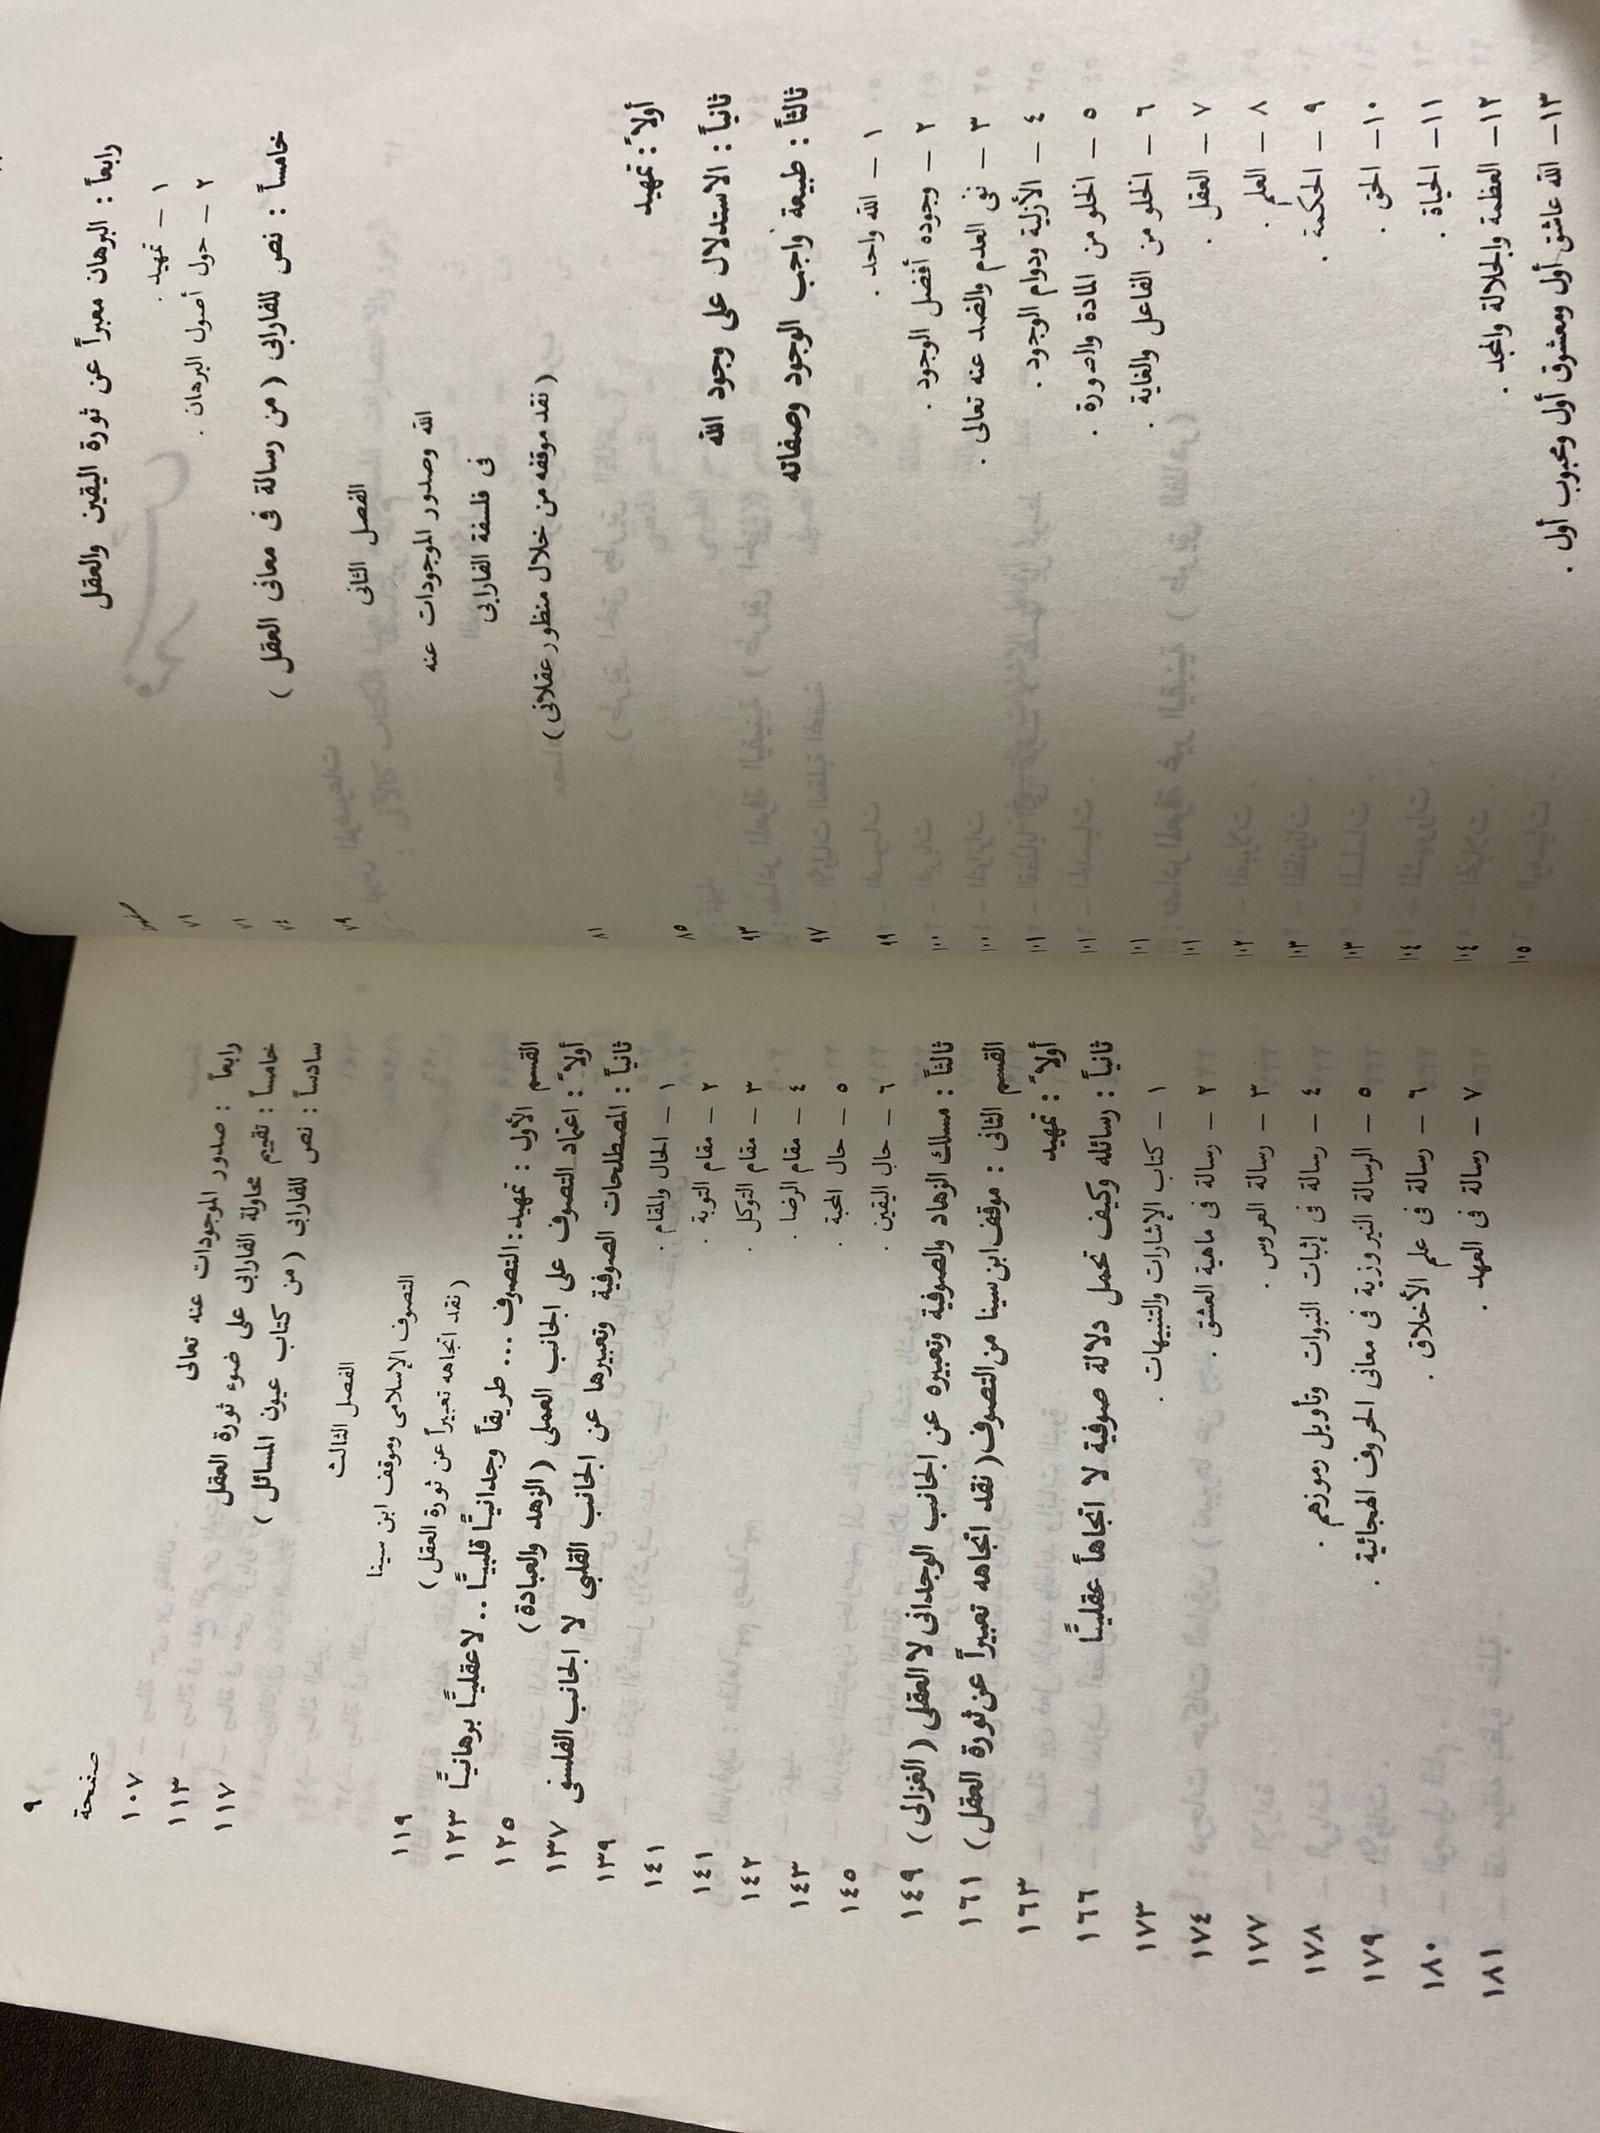 صفحة
رابعاً : البرهان معبراً عن ثورة اليقين والعقل ٧١
١ – تمهيد . ٧١
٢ – حول أصول البرهان . ٧٤
خامساً : نص للفارابى ( من رسالة فى معانى العقل ) ٧٩
الفصل الثانى
الله وصدور الموجودات عنه
فى فلسفة الفارابى
( نقد موقفه من خلال منظور عقلانى ) ٨١
أولاً : تمهيد ٨٥
ثانياً : الاستدلال على وجود الله ٩٣
ثالثاً : طبيعة واجب الوجود وصفاته ٩٧
١ – الله واحد . ٩٩
٢ – وجوده أفضل الوجود . ١٠٠
٣ – نفى العدم والضد عنه تعالى . ١٠٠
٤ – الأزلية ودوام الوجود . ١٠١
٥ – الخلو من المادة والصورة . ١٠١
٦ – الخلو من الفاعل والغاية . ١٠١
٧ – العقل . ١٠١
٨ – العلم . ١٠٢
٩ – الحكمة . ١٠٣
١٠ – الحق . ١٠٣
١١ – الحياة . ١٠٤
١٢ – العظمة والجلالة والمجد . ١٠٤
١٣ – الله عاشق أول ومعشوق أول ومحبوب أول . ١٠٥
٩
صفحة
رابعاً : صدور الموجودات عنه تعالى ١٠٧
خامساً : تقييم محاولة الفارابى على ضوء ثورة العقل ١١٣
سادساً : نص للفارابى ( من كتاب عيون المسائل ) ١١٧
الفصل الثالث
التصوف الإسلامى وموقف ابن سينا
( نقد اتجاهه تعبيراً عن ثورة العقل ) ١١٩
القسم الأول : تمهيد : التصوف ... طريقاً وجدانيًّا قلبيًّا .. لا عقليًّا برهانيًّا ١٢٣
أولاً : اعتماد التصوف على الجانب العملى ( الزهد والعبادة ) ١٢٥
ثانياً : المصطلحات الصوفية وتعبيرها عن الجانب القلبى لا الجانب الفلسفى ١٣٧
١ – الحال والمقام . ١٣٩
٢ – مقام التوبة . ١٤١
٣ – مقام التوكل . ١٤١
٤ – مقام الرضا . ١٤٢
٥ – حال المحبة . ١٤٣
٦ – حال اليقين . ١٤٥
ثالثاً : مسلك الزهاد والصوفية وتعبيره عن الجانب الوجدانى لا العقلى ( الغزالى ) ١٤٩
القسم الثانى : موقف ابن سينا من التصوف ( نقد اتجاهه تعبيراً عن ثورة العقل ) ١٦١
أولاً : تمهيد ١٦٣
ثانياً : رسائله وكيف تحمل دلالة صوفية لا اتجاهاً عقليًّا ١٦٦
١ – كتاب الإشارات والتنبيهات . ١٧٣
٢ – رسالة فى ماهية العشق . ١٧٤
٣ – رسالة العروس . ١٧٧
٤ – رسالة فى إثبات النبوات وتأويل رموزهم . ١٧٨
٥ – الرسالة النيروزية فى معانى الحروف الهجائية . ١٧٩
٦ – رسالة فى علم الأخلاق . ١٨٠
٧ – رسالة فى العهد . ١٨١